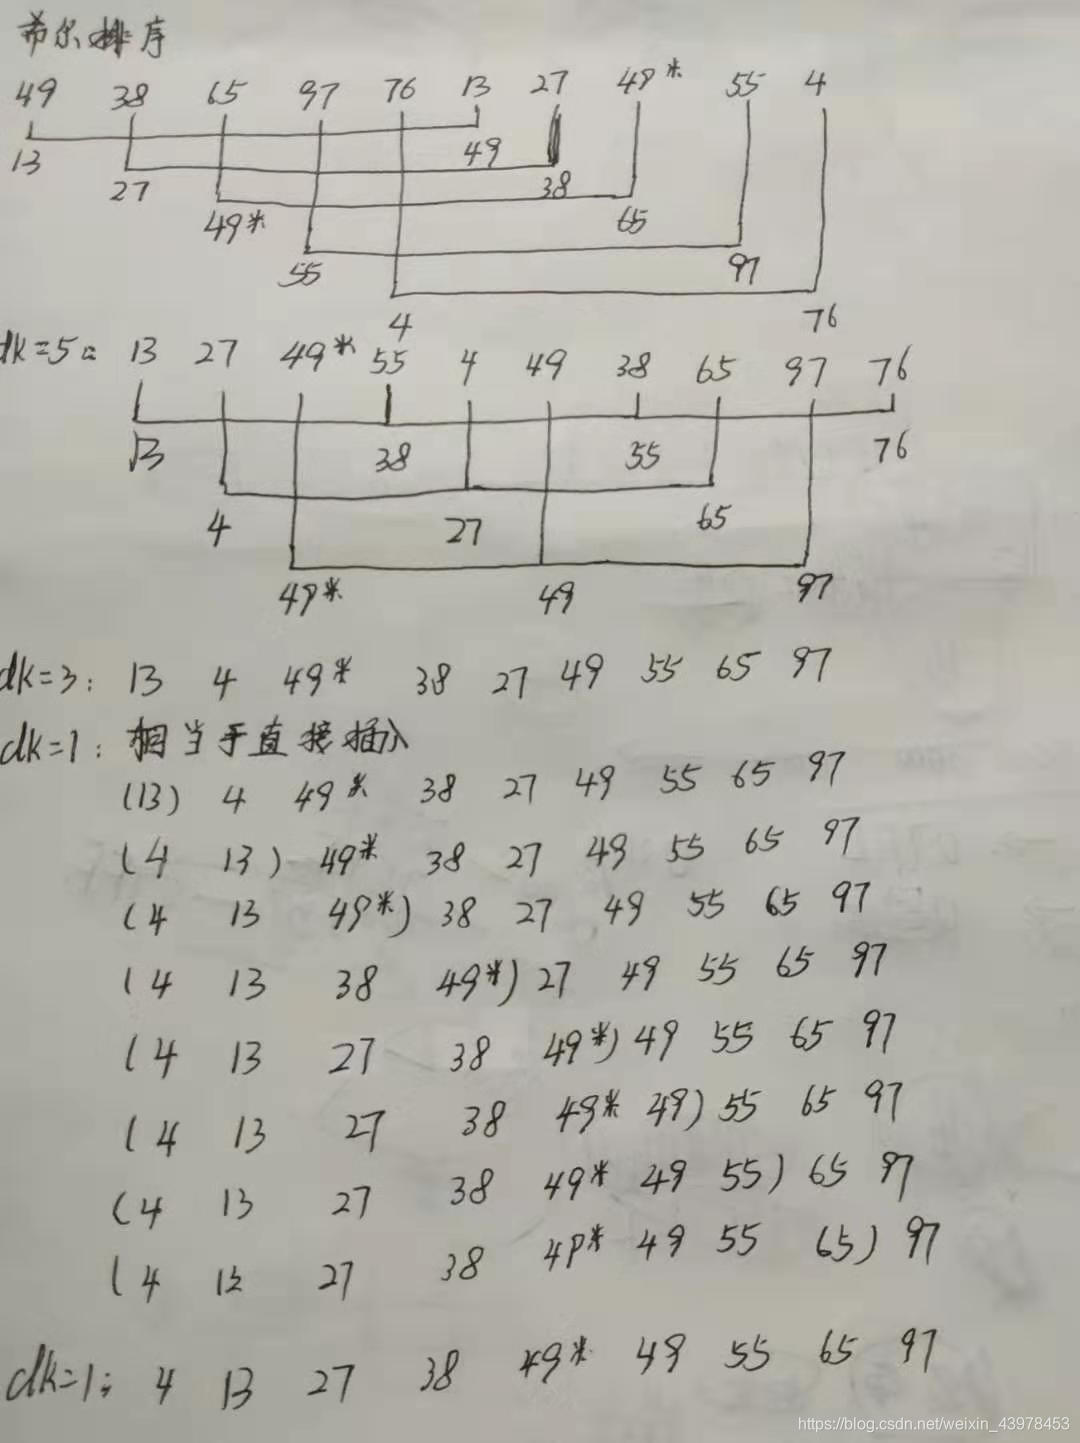 希尔排序
49 38 65 97 76 13 27 49* 55 4
13 49
27 38
49* 65
55 97
4 76
dk=5: 13 27 49* 55 4 49 38 65 97 76
13 38 55 76
4 27 65
49* 49 97
dk=3: 13 4 49* 38 27 49 55 65 97
dk=1: 相当于直接插入
(13) 4 49* 38 27 49 55 65 97
(4 13) 49* 38 27 49 55 65 97
(4 13 49*) 38 27 49 55 65 97
(4 13 38 49*) 27 49 55 65 97
(4 13 27 38 49*) 49 55 65 97
(4 13 27 38 49* 49) 55 65 97
(4 13 27 38 49* 49 55) 65 97
(4 13 27 38 49* 49 55 65) 97
dk=1: 4 13 27 38 49* 49 55 65 97
https://blog.csdn.net/weixin_43978453